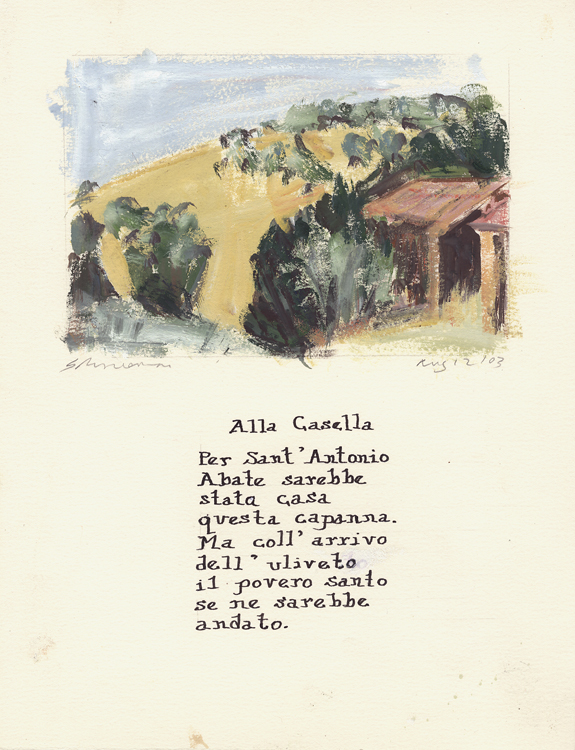 Aug 12 '03
Alla Casella
Per Sant'Antonio
Abate sarebbe
stata casa
questa capanna.
Ma coll' arrivo
dell' uliveto
il povero santo
se ne sarebbe
andato.